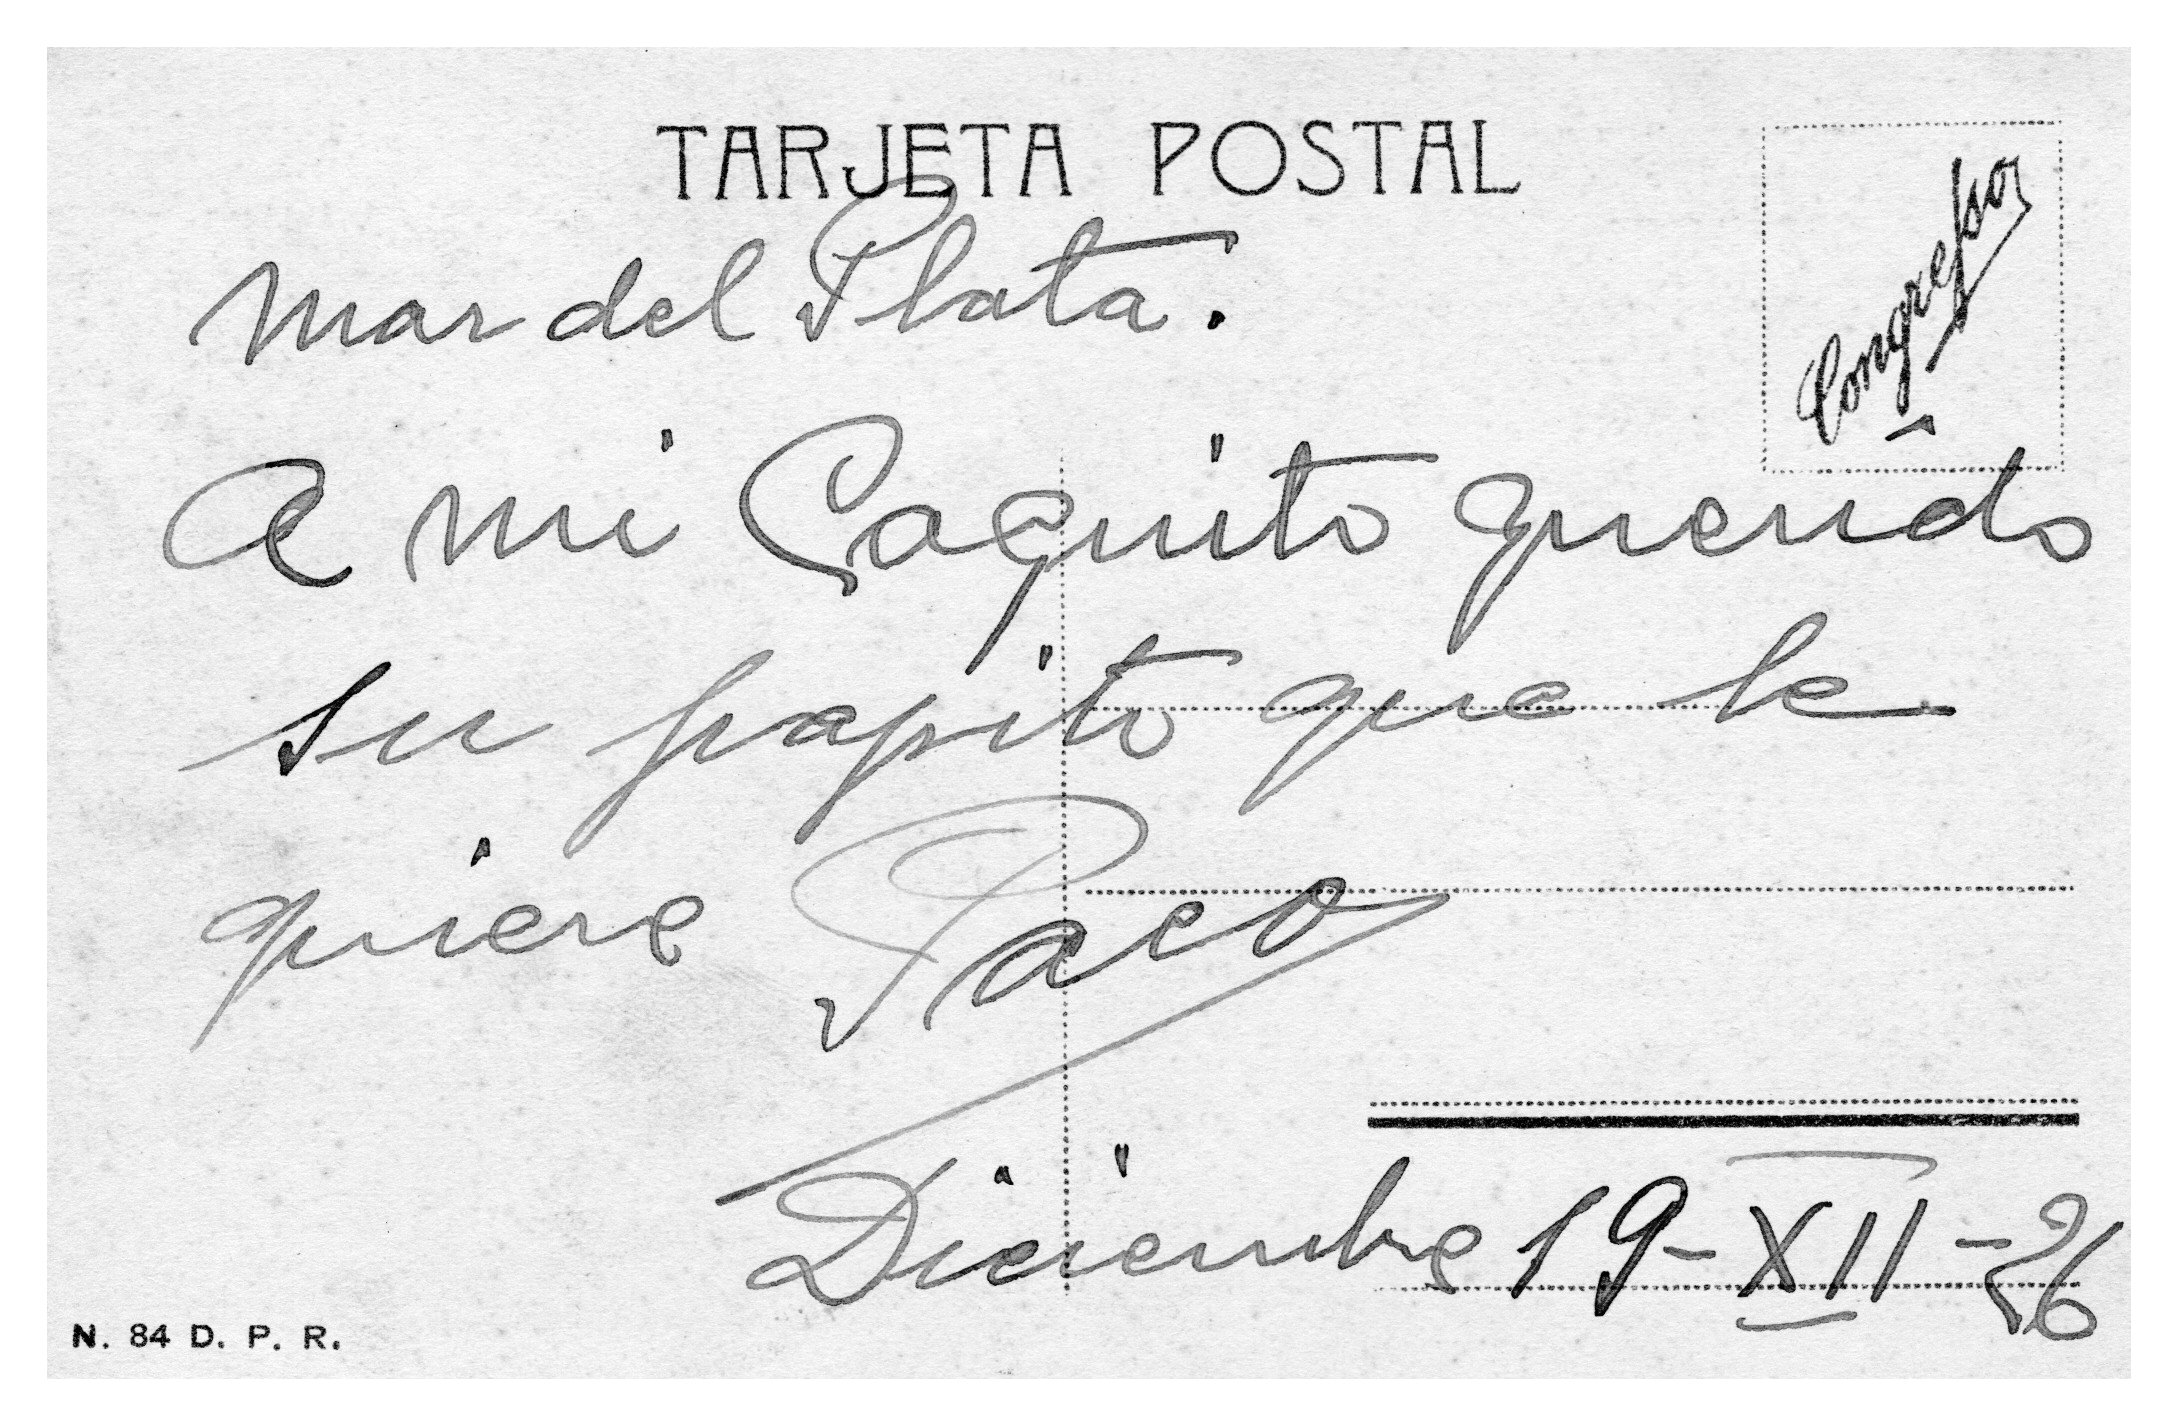 TARJETA POSTAL
Congreso
Mar del Plata.
A mi Coquito querido
su papito que le
quiere Paco
Diciembre 19-XII-26
N. 84 D. P. R.